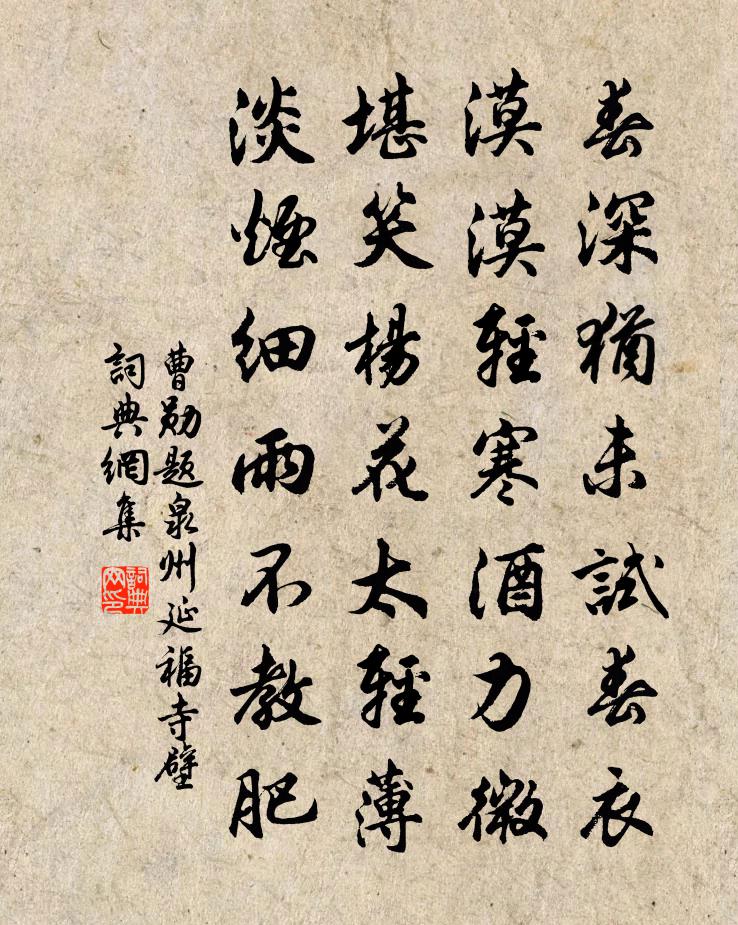 春深猶未試春衣
漠漠輕寒酒力微
堪笑楊花太輕薄
淡煙細雨不教肥
曹勛題泉州延福寺壁
詞典網集
詞典網印